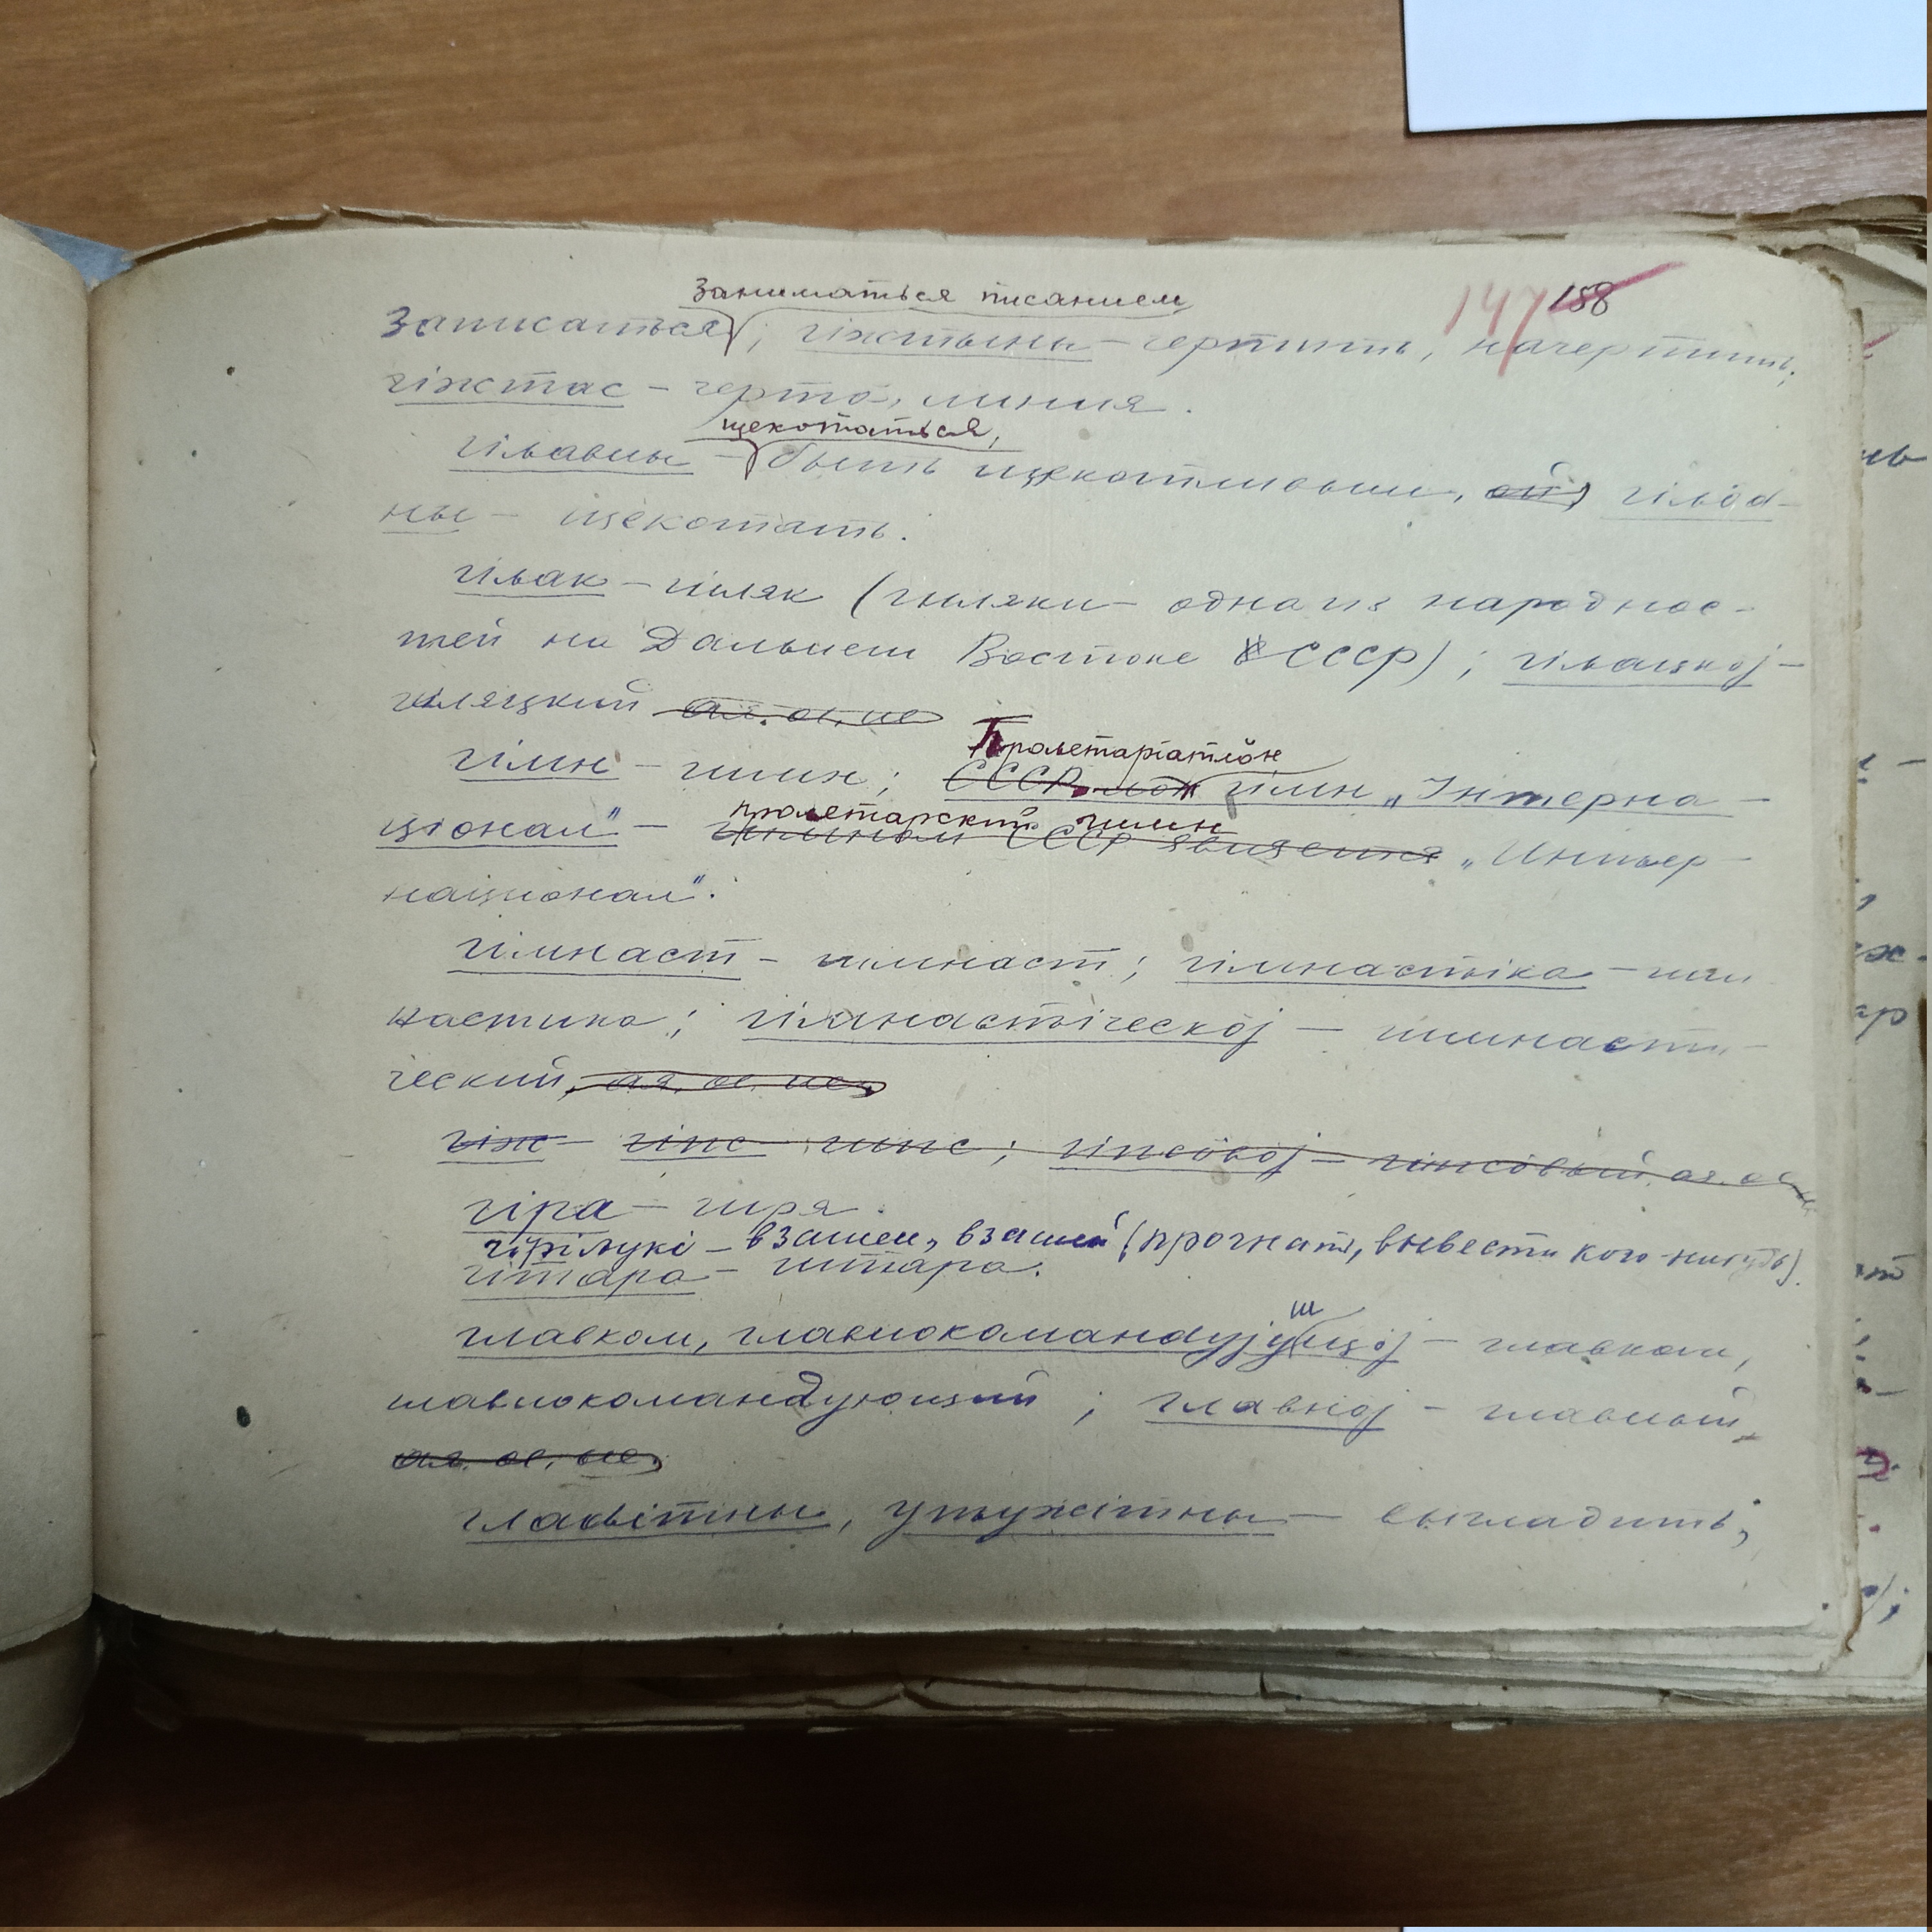 147 158
заниматься писанием,
записаться; гіжтыны – чертить, начертить;
гіжтас – черта, линия.
щекотаться,
гільавны – быть щекотливым, гільӧд-
ны – щекотать.
гільак – гиляк (гиляки – одна из народнос-
тей на Дальнем Востоке СССР); гільацкӧј –
гиляцкий ая, ое, ие
Пролетаріатлӧн
гімн – гимн; СССР-лӧн гімн „Інтерна-
пролетарский гимн
ціонал" – Гимном СССР является „Интер-
национал".
гімнаст – гимнаст; гімнастіка – гим
настика; гімнастіческӧј – гимнасти-
ческий, ая, ое, ие,
гіж – гіпс – гипс; гіпсӧвӧј – гипсовый, ая, ое
гіра – гиря.
взашеи, взашей (прогнать, вывести кого-нибудь).
гітара – гитара.
ш
главком, главнокомандујущӧј – главком,
главнокомандующий; главнӧј – главный,
ая, ое, ие,
гладітны, утужітны – выгладить;